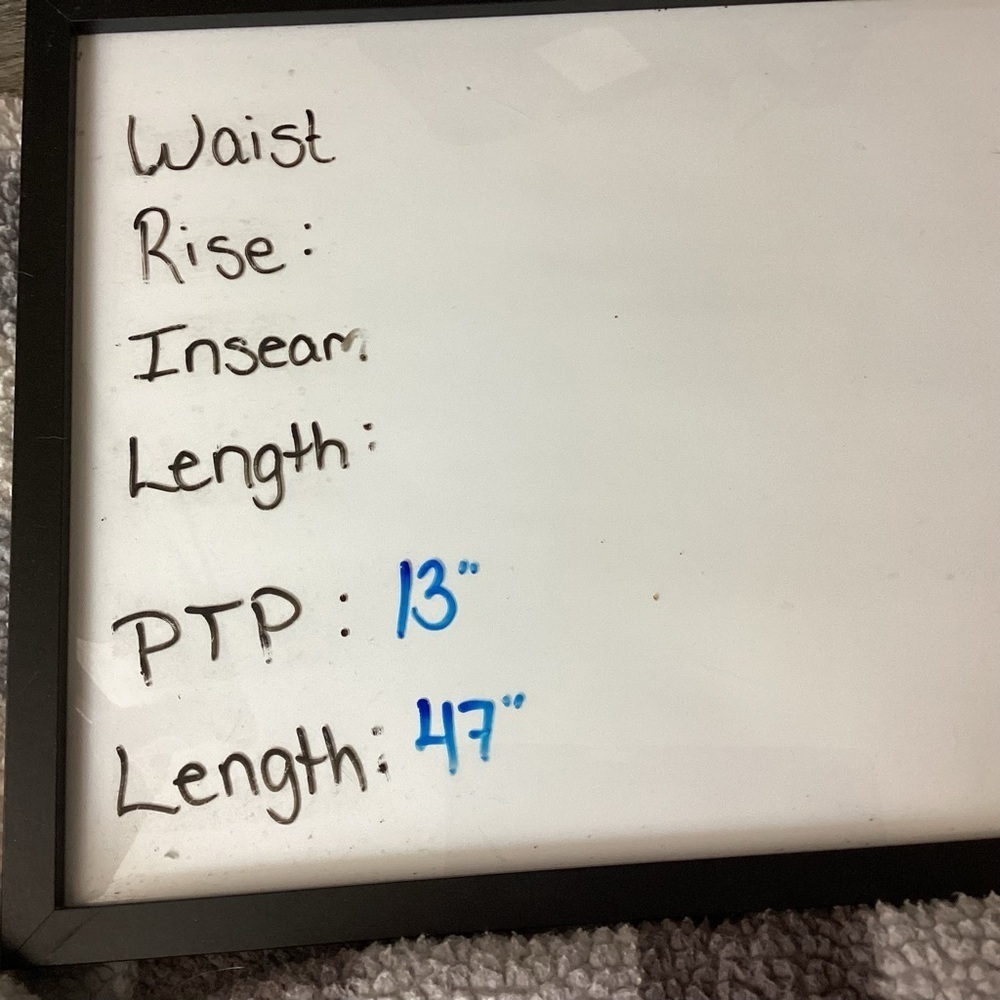 Waist
Rise:
Inseam
Length:
PTP: 13"
Length: 47"